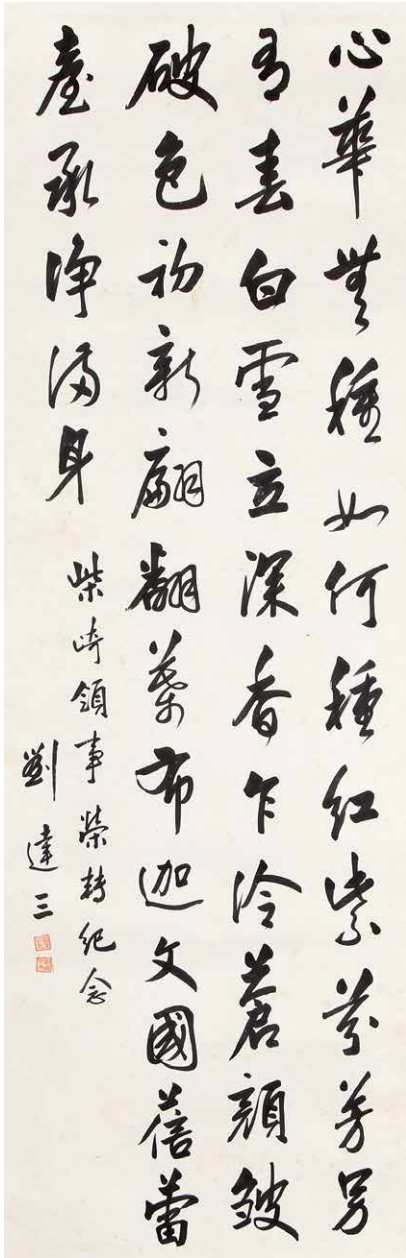 心華無種如何種紅紫芬芳另
有春白雪立深香乍冷蒼顏皴
破色初新翩翻葉布迦文國蓓蕾
臺承淨滿身
柴崎領事榮轉紀念
劉達三